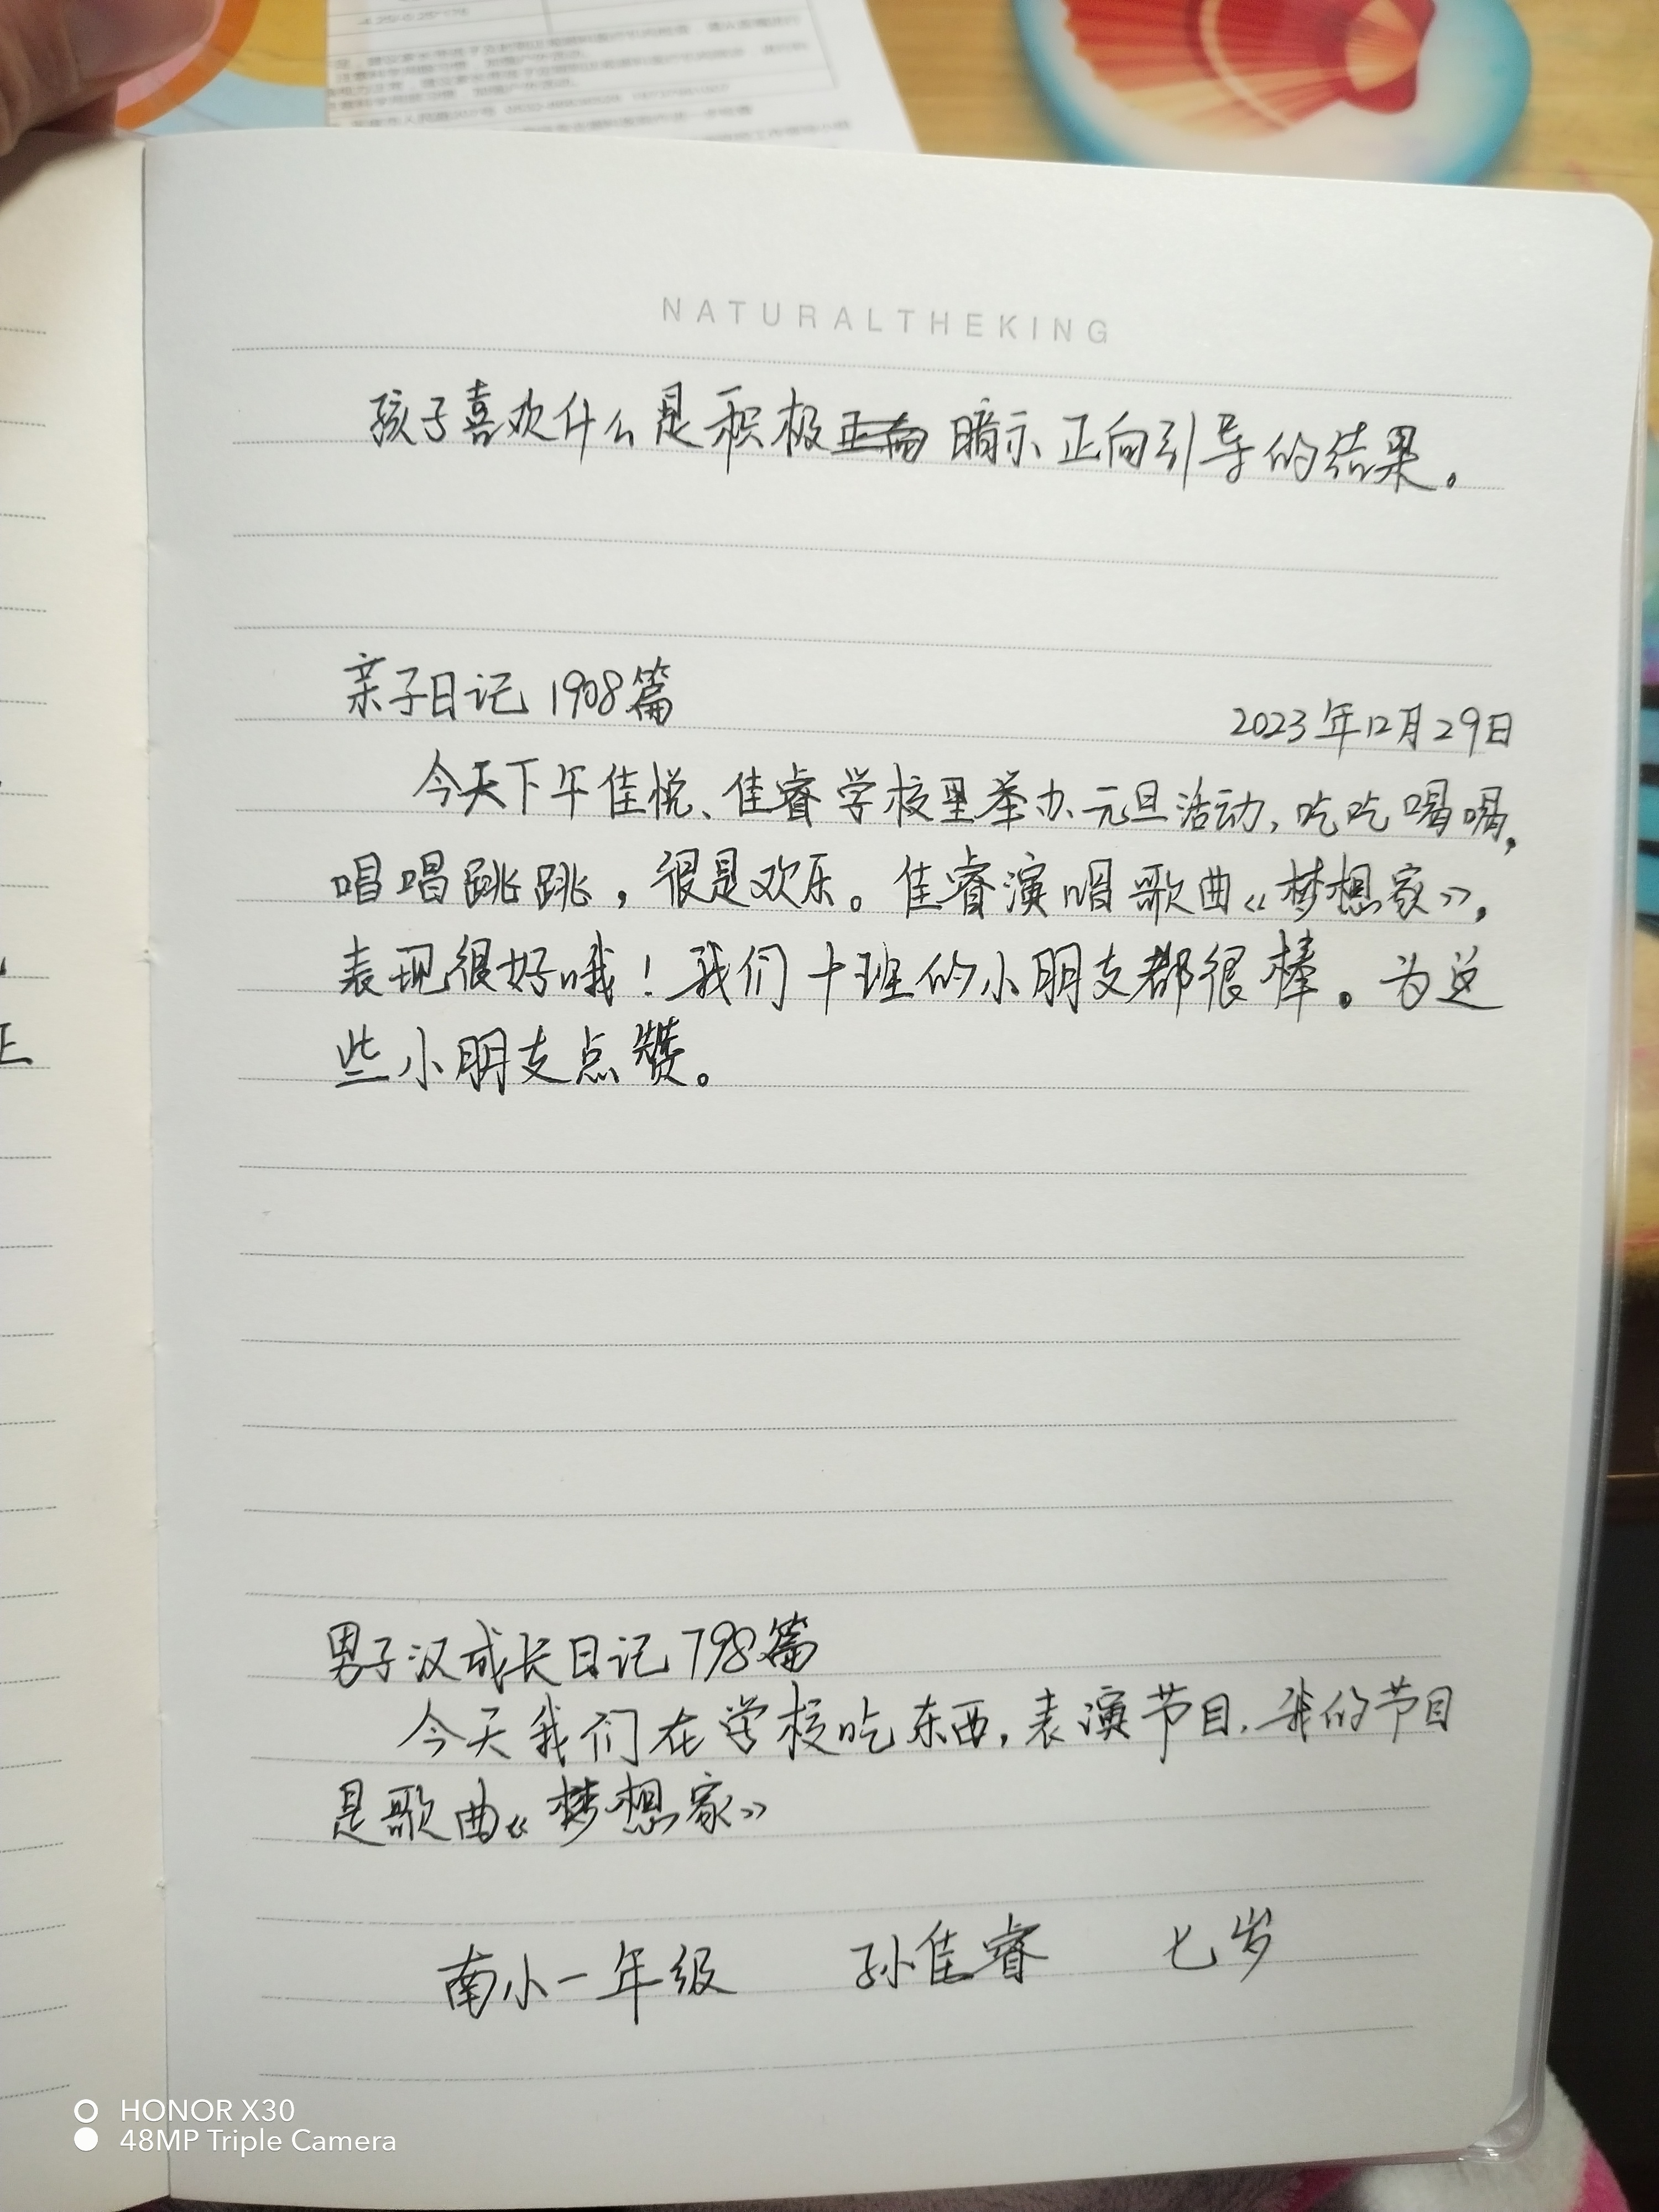 NATURALTHEKING
孩子喜欢什么是积极暗示正向引导的结果。
亲子日记 1908篇
2023年12月29日
今天下午佳悦、佳睿学校里举办元旦活动,吃吃喝喝,
唱唱跳跳,很是欢乐。佳睿演唱歌曲《梦想家》,
表现很好哦!我们十班的小朋友都很棒。为这
些小朋友点赞。
男子汉成长日记798篇
今天我们在学校吃东西,表演节目.我的节目
是歌曲《梦想家》
南小一年级 孙佳睿 七岁
HONOR X30
48MP Triple Camera